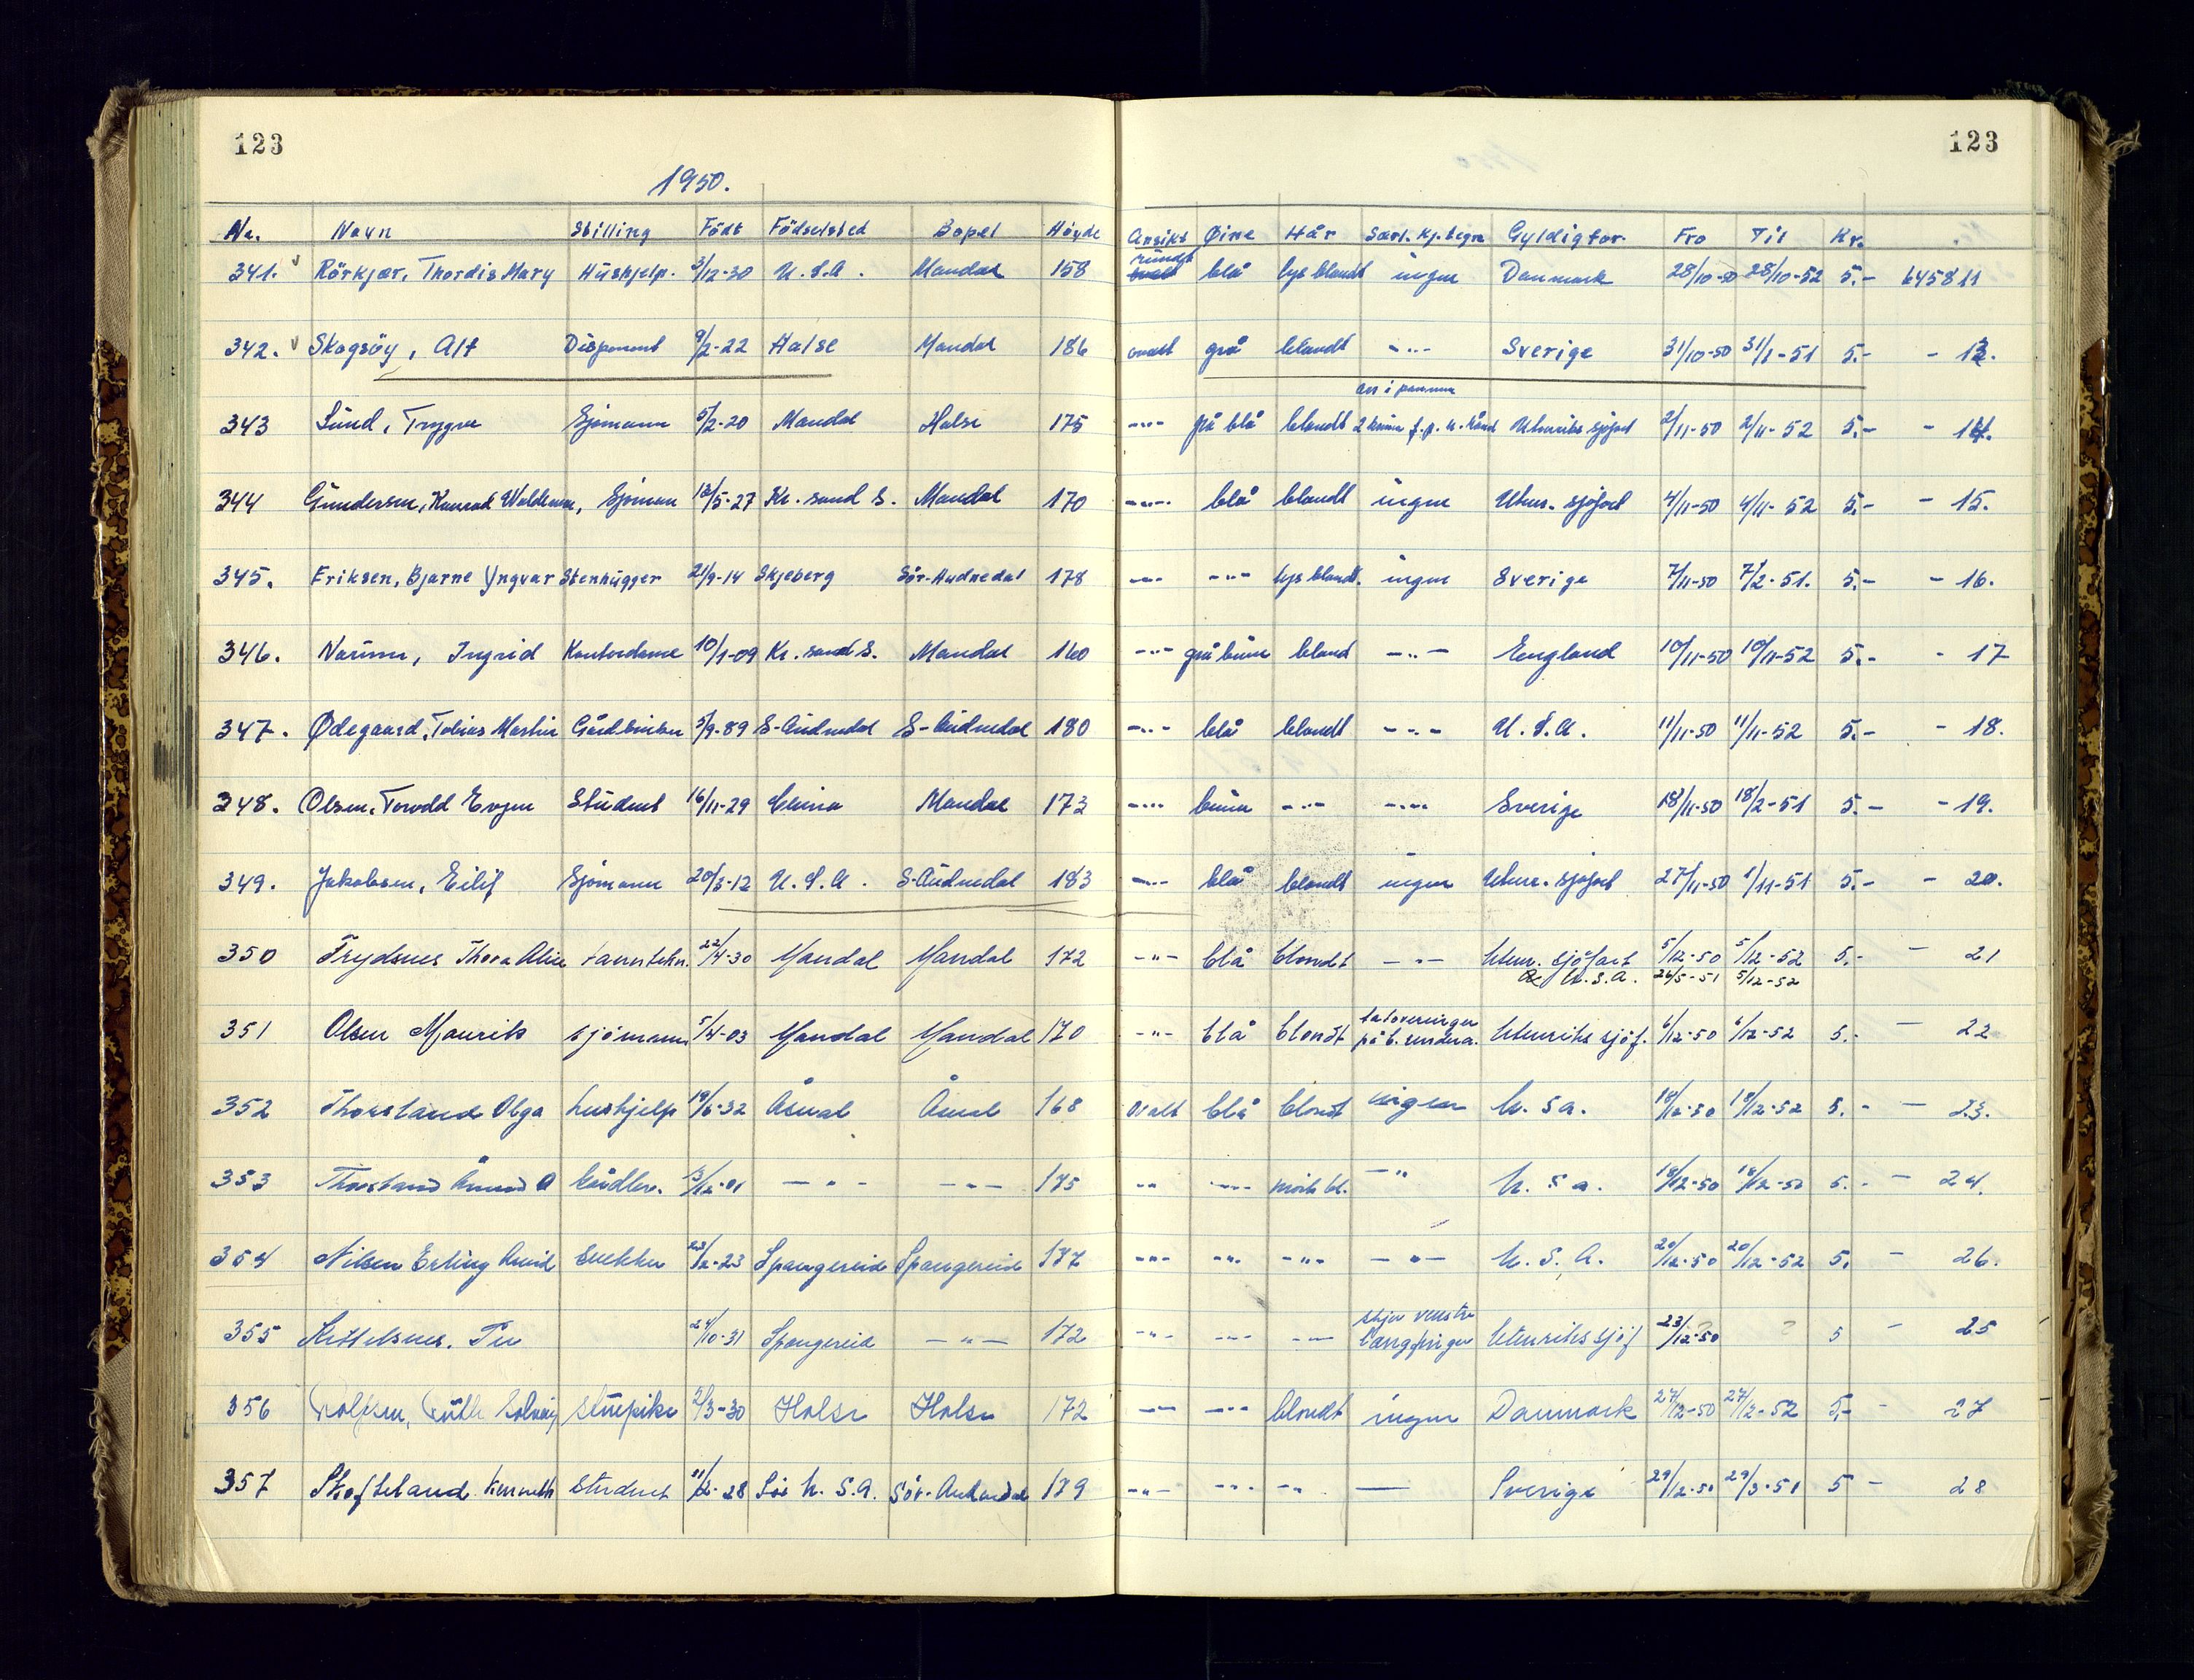 123 123
1950.
No. Navn Stilling Født Födselsted Bopel Höyde Ansikt Øine Hår Særl. kj.tegn Gyldig for Fra Til Kr.
rundt
341. Rörkjær, Thordis Mary Hushjelp. 3/12-30 U.S.A. Mandal 158 ovalt blå lys blondt ingen Danmark 28/10-50 28/10-52 5.- 645811
342. Skogsöy, Alf Disponent 9/2-22 Halse Mandal 186 ovalt grå blondt -"- Sverige 31/10-50 31/1-51 5.- - 13.
arr i pannen
343 Lund, Trygve Sjömann 5/2-20 Mandal Halse 175 -"- grå blå blondt Utenriks sjöfart 2/11-50 2/11-52 5.- - 14.
344 Gundersen, Konrad Waldemar, Sjömann 13/5-27 Kr. sand S. Mandal 170 -"- blå blondt ingen Utenr. sjöfart 4/11-50 4/11-52 5.- - 15.
345. Eriksen, Bjarne Yngvar Stenhugger 21/9-14 Skjeberg Sör-Audnedal 178 -"- -"- lys blondt. ingen Sverige 7/11-50 7/2-51. 5.- - 16.
346. Ingrid Kontordame 10/1-09 Kr. sand S. Mandal 160 -"- grå brun blond -"- England 10/11-50 10/11-52 5.- - 17
347. Ødegaard, Tobias Martin Gårdbruker 5/9-89 S-Audnedal S-Audnedal 180 -"- blå blondt -"- U.S.A. 11/11-50 11/11-52 5.- - 18.
348. Olsen, Torodd Evgen Student 16/11-29 China Mandal 173 -"- brun -"- -"- Sverige 18/11-50 18/2-51 5.- - 19.
349. Jakobsen, Eilif Sjömann 20/3-12 U.S.A. S-Audnedal 183 -"- blå blondt ingen Utenr. sjöfart 27/11-50 1/11-51 5.- - 20.
350 Frydsnes Thora Alice tannteknr. 22/4-30 Mandal Mandal 172 -"- blå blondt -"- Utenr. sjöfart 5/12-50 5/12-52 5.- - 21
U.S.A. 26/5-51 5/12-52
tatoveringer
351 Olsen Maurits sjömann 5/4-03 Mandal Mandal 170 -"- blå blondt på b. underar. Utenriks sjöf. 6/12-50 6/12-52 5.- - 22
352 Thorsland Olga hushjelp 19/6-32 Åseral Åseral 168 ovalt blå blondt ingen U.S.A. 18/12-50 18/12-52 5.- - 23.
353 Thorsland Ånund A Gårdbr. 3/12-01 -"- -"- 175 -"- -"- mörk bl. -"- U.S.A. 18/12-50 18/12-52 5.- - 24.
354 Nilsen Erling Arvid Snekker 23/12-23 Spangereid Spangereid 177 -"- -"- -"- -"- U.S.A. 20/12-50 20/12-52 5. - 26.
skjev venstre
355 Kittelsnes. Per 24/10-31 Spangereid -"- 172 -"- -"- -"- langfinger Utenriks sjöf 23/12-50 ? 5 - 25
356 Rolfsen, Ruth Solveig stuepike 2/3-30 Halse Halse 172 -"- -"- blondt ingen Danmark 27/12-50 27/12-52 5.- - 27
357 Skofteland Kenneth Student 11/2-28 U.S.A. Sör-Audnedal 179 -"- -"- -"- — Sverige 29/12-50 29/3-51 5 - 28